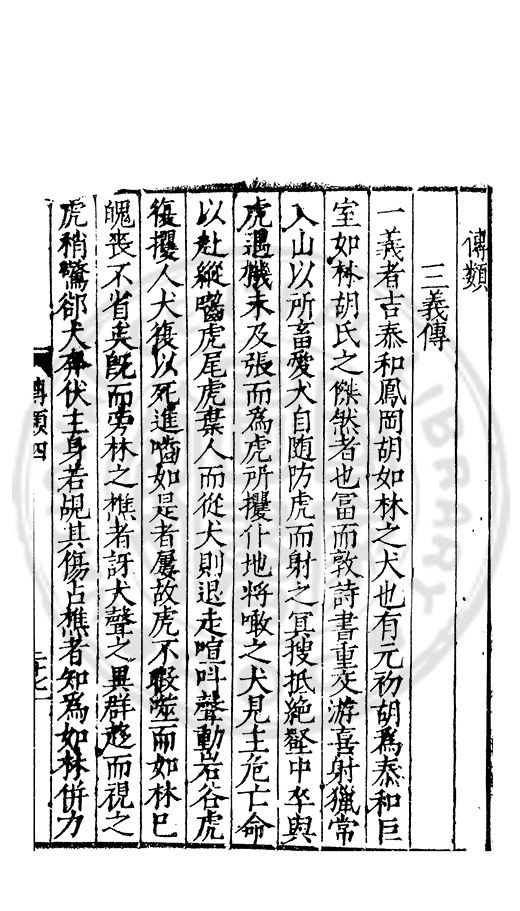 傳類
三義傳
一義者古泰和鳳岡胡如林之犬也有元初胡為泰和巨
室如林胡氏之傑然者也冨而敦詩書重交游喜射獵常
入山以所畜愛犬自随防虎而射之冥搜抵絶壑中卒與
虎遇機未及張而為虎所攫仆地將噉之犬見主危亡命
以赴縱嚙虎尾虎棄人而從犬則退走喧叫聲動岩谷虎
復攫人犬復以死進嚙如是者屢故虎不暇噬而如林已
魄喪不省矣旣而旁林之樵者訝犬聲之異群趍而視之
虎稍驚郤犬奔伏主身若覘其傷占樵者知為如林併力
傳類四
二十七